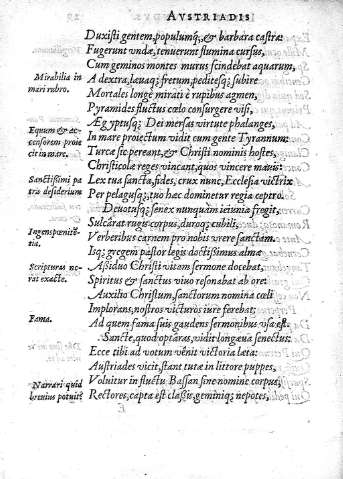 AVSTRIADIS
Duxisti gentem, populumq́;, & barbara castra
Fugerunt vndæ, tenuerunt flumina cursus,
Cum geminos montes murus scindebat aquarum,
Mirabilia in mari rubro.
A dextra, læuaq́; fretum, peditesq́; subire
Mortales longè mirati è rupibus agmen,
Pyramides fluctus cœlo consurgere visi,
Æg yptusq́; Dei mersas virtute phalanges,
Equum & ascensorem proiecit in mare.
In mare proiectum vidit cum gente Tyrannum:
Turcæ sic pereant, & Christi nominis hostes,
Christicolæ reges vincant, quos vincere mauis:
Sanctissimi patris desiderium
Lex tua sancta, fides, crux nunc, Ecclesia victrix
Per pelagusq́;, tuo hæc dominetur regia ceptro.
Deuotusq́; senex nunquam ieiunia fregit,
Sulcârat rugis corpus, duroq́; cubili,
Ingens pœnitẽtia.
Verberibus carnem pro nobis vrere sanctam.
Isq́; gregem pastor legis doctissimus almæ
Scripturas nouerat exactè.
Assiduò Christi vitam sermone docebat,
Spiritus & sanctus viuo resonabat ab ore:
Auxilio Christum, sanctorum nomina cœli
Implorans, nostros victuros iure ferebat;
Fama.
Ad quem fama suis gaudens sermonibus vsa est.
Sancte, quod optâras, vidit longæua senectus:
Ecce tibi ad votum vênit victoria læta:
Austriades vicit, stant tutæ in littore puppes,
Voluitur in fluctu Bassan sine nomine corpus,
Narrari quid breuius potuit?
Rectores, capta est classis, geminiq́; nepotes,
E